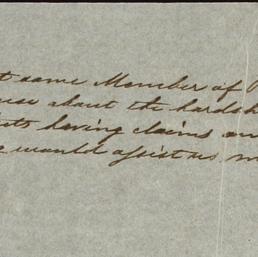 t some Member of
about the hardsh
having claims
would assist us